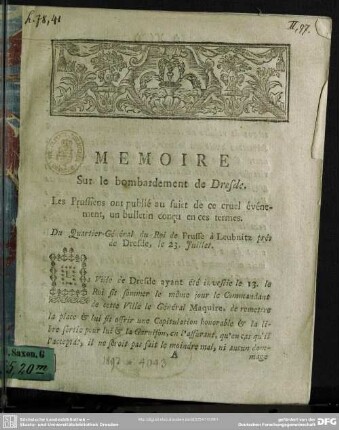 h. 78, 41
II, 97.
MEMOIRE
Sur le bombardement de Dresde.
Les Prussiens ont publié au sujet de ce cruel événe-
ment, un bulletin conçu en ces termes.
Du Quartier-Général du Roi de Prusse à Leubnitz près
de Dresde, le 23. Juillet.
Ville de Dresde ayant été investie le 13. le
Roi fit sommer le même jour le Commandant
de cette Ville le Général Maquire, de remettre
la place & lui fit offrir une Capitulation honorable & la li-
bre sortie pour lui & la Garnison, en l'assurant, qu'en cas qu'il
l'acceptât, il ne seroit pas fait le moindre mal, ni aucun dom-
A
mage
Saxon. G
520 m